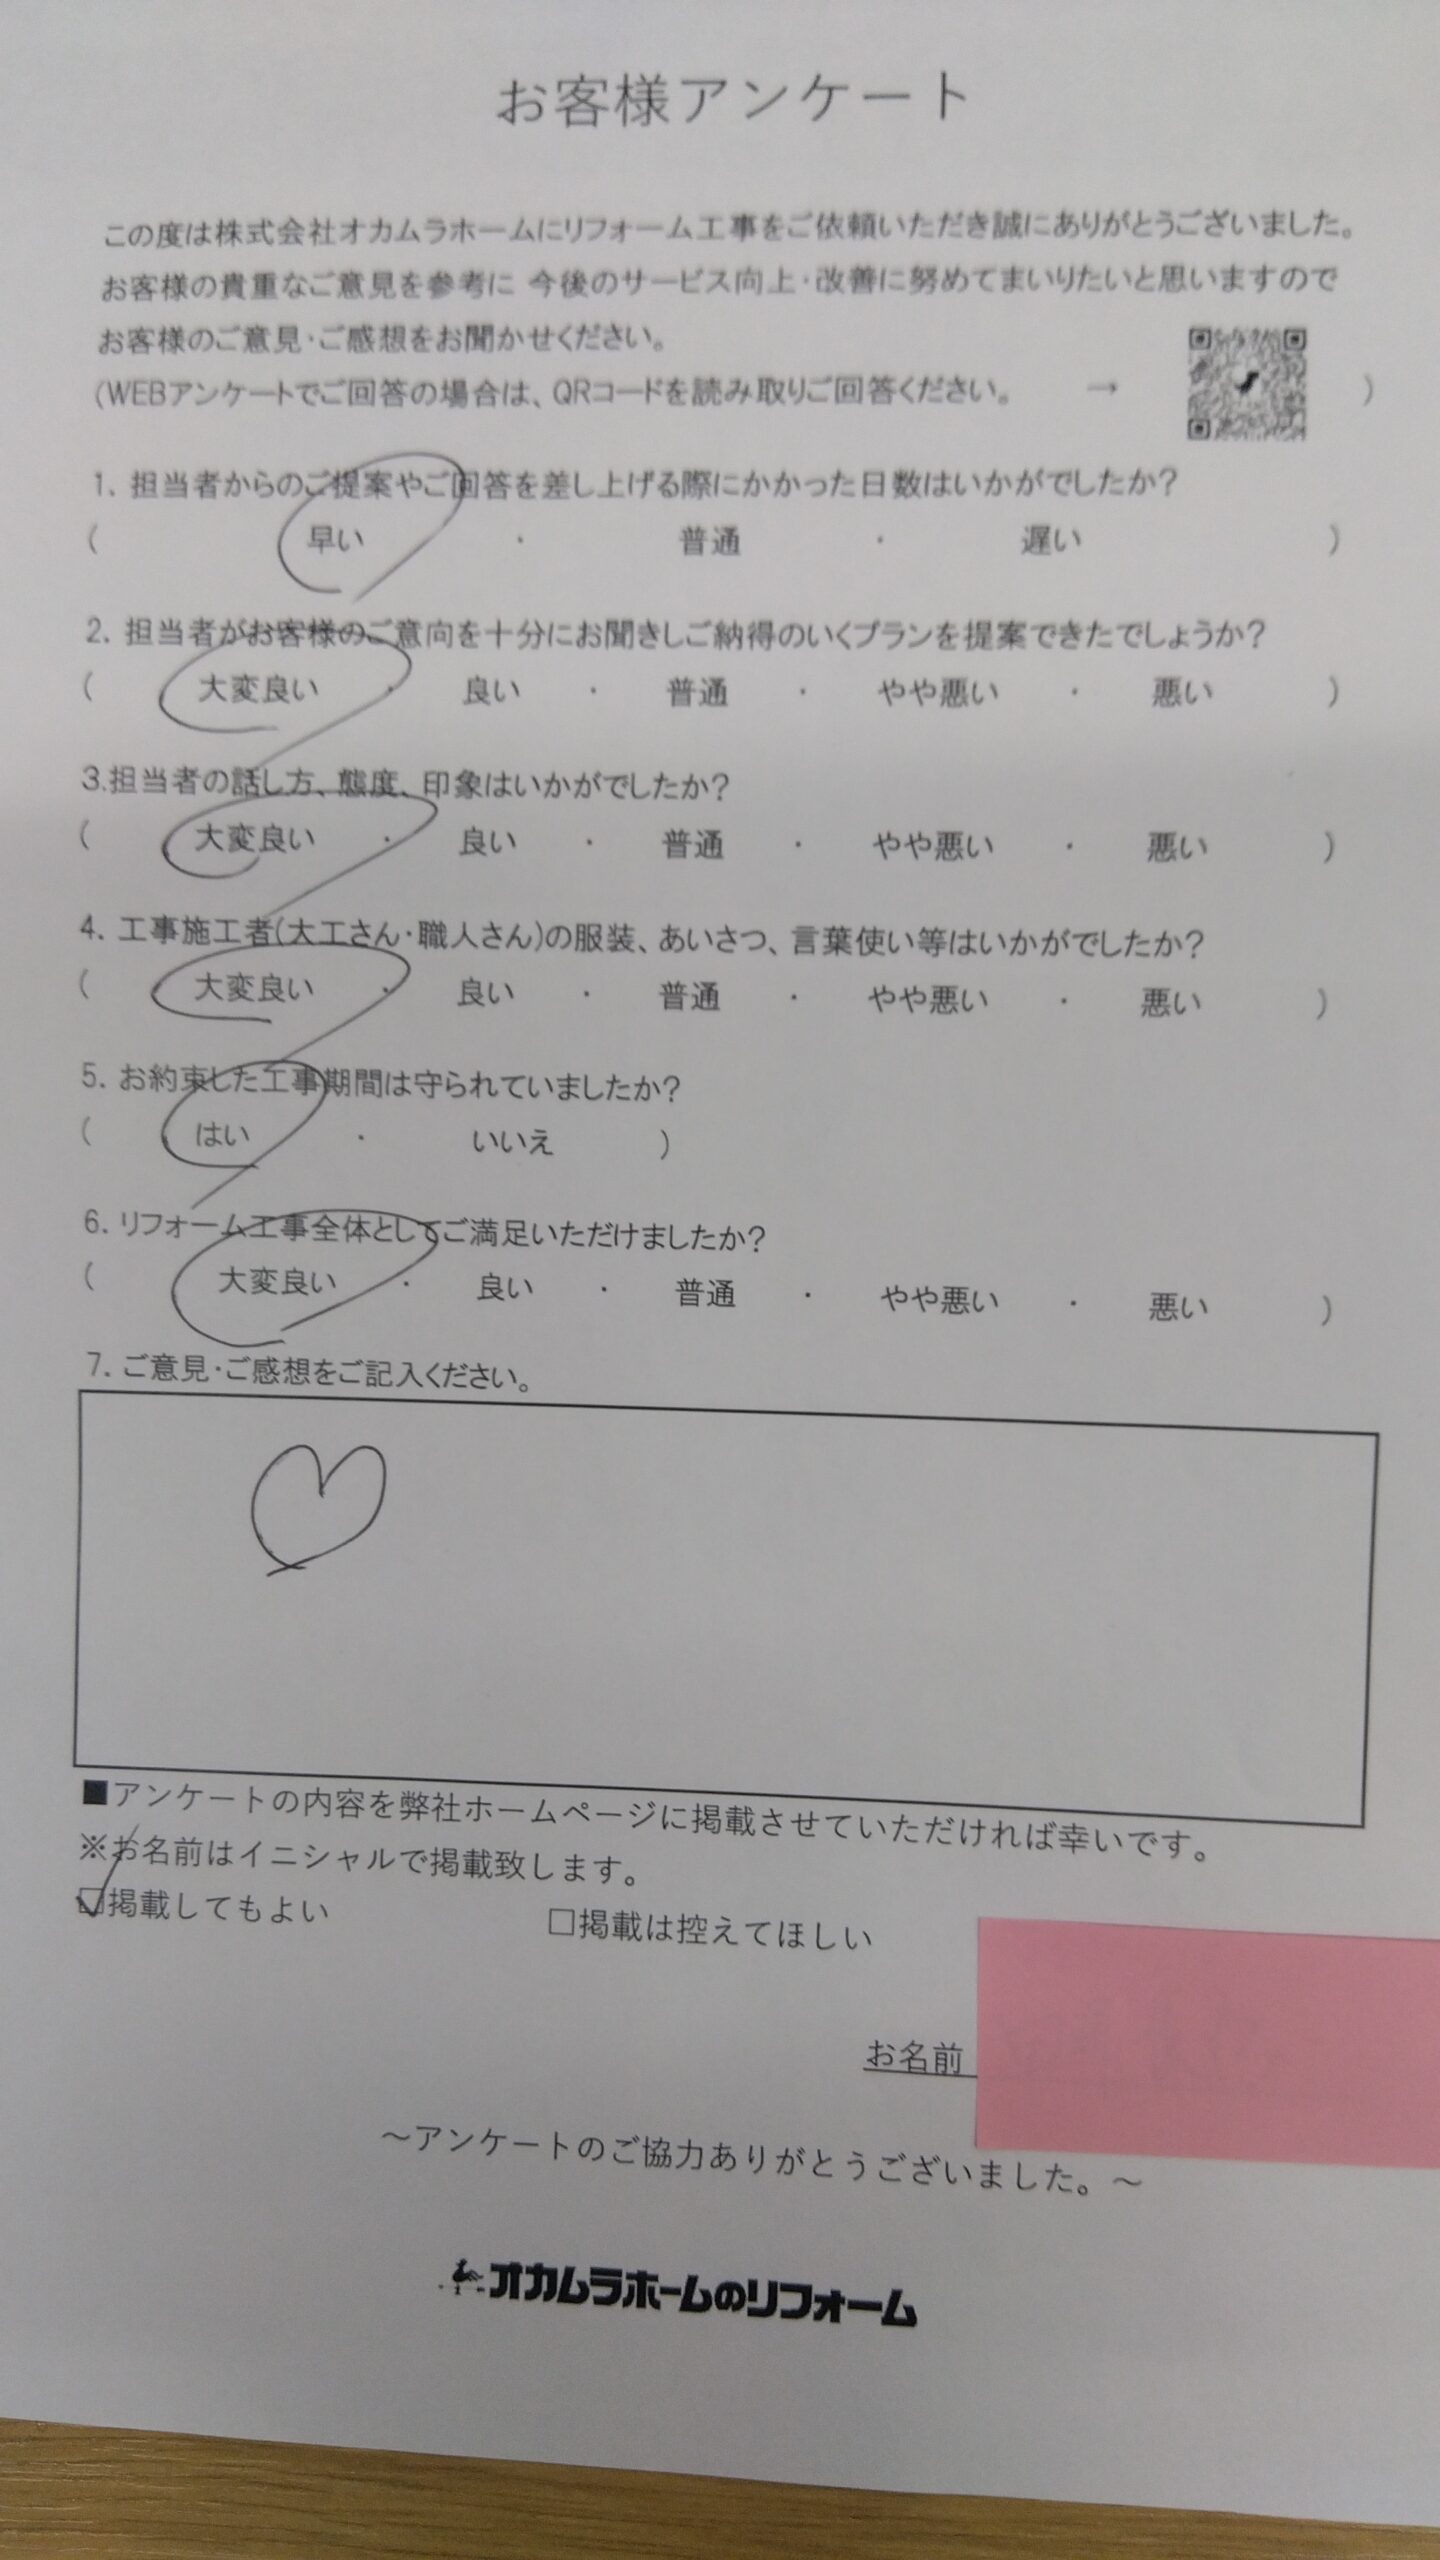 お客様アンケート
この度は株式会社オカムラホームにリフォーム工事をご依頼いただき誠にありがとうございました。
お客様の貴重なご意見を参考に 今後のサービス向上・改善に努めてまいりたいと思いますので
お客様のご意見・ご感想をお聞かせください。
(WEBアンケートでご回答の場合は、QRコードを読み取りご回答ください。 → )
1. 担当者からのご提案やご回答を差し上げる際にかかった日数はいかがでしたか?
( 早い ・ 普通 ・ 遅い )
2. 担当者がお客様のご意向を十分にお聞きしご納得のいくプランを提案できたでしょうか?
( 大変良い ・ 良い ・ 普通 ・ やや悪い ・ 悪い )
3.担当者の話し方、態度、印象はいかがでしたか?
( 大変良い ・ 良い ・ 普通 ・ やや悪い ・ 悪い )
4. 工事施工者(大工さん・職人さん)の服装、あいさつ、言葉使い等はいかがでしたか?
( 大変良い ・ 良い ・ 普通 ・ やや悪い ・ 悪い )
5. お約束した工事期間は守られていましたか?
( はい ・ いいえ )
6. リフォーム工事全体としてご満足いただけましたか?
( 大変良い ・ 良い ・ 普通 ・ やや悪い ・ 悪い )
7. ご意見・ご感想をご記入ください。
■アンケートの内容を弊社ホームページに掲載させていただければ幸いです。
※お名前はイニシャルで掲載致します。
☑掲載してもよい □掲載は控えてほしい
お名前
～アンケートのご協力ありがとうございました。～
オカムラホームのリフォーム